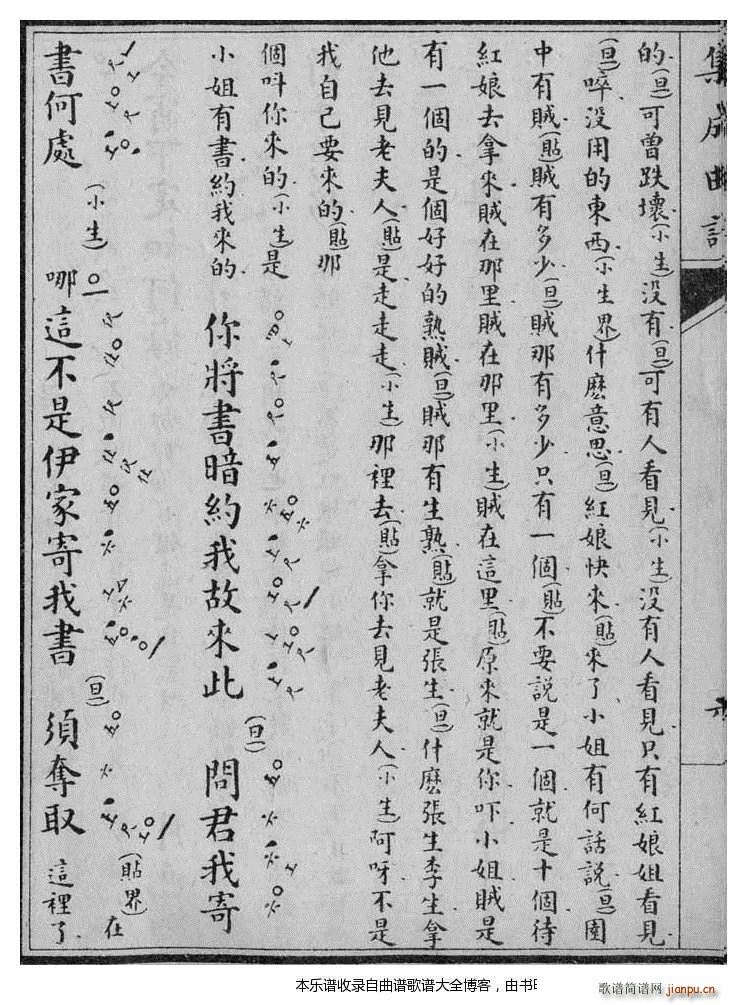 集成曲譜
的(旦)可曾跌壞(小生)没有(旦)可有人看見(小生)没有人看見只有紅娘姐看見
(旦)啐没用的東西(小生界)什麽意思(旦)紅娘快來(貼)來了小姐有何話說(旦)園
中有賊(貼)賊有多少(旦)賊那有多少只有一個(貼)不要説是一個就是十個待
紅娘去拿來賊在那里賊在那里(小生)賊在這里(貼)原來就是你吓小姐賊是
有一個的是個好好的熟賊(旦)賊那有生熟(貼)就是張生(旦)什麽張生李生拿
他去見老夫人(貼)是走走走(小生)那裡去(貼)拿你去見老夫人(小生)阿呀不是
我自己要來的(貼)那
個叫你來的(小生)是
小姐有書約我來的
你將書暗約我故來此(旦)問君我寄
書何處(小生)哪這不是伊家寄我書(旦)須奪取(貼界)在
這裡了
本乐谱收录自曲谱歌谱大全博客，由书
歌谱简谱网
jianpu.cn